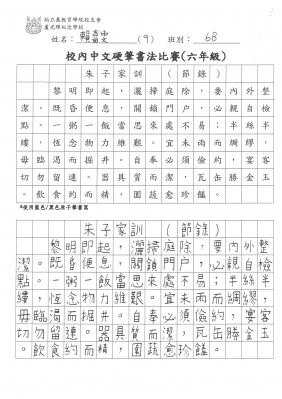 柏立基教育學院校友會
盧光輝紀念學校
姓名： 賴 (9) 班別： 6B
校內中文硬筆書法比賽(六年級)
朱子家訓（節錄）
黎明即起，灑掃庭除，要內外整
潔。既昏便息，關鎖門戶，必親自檢
點。一粥一飯當思來處不易；半絲半
縷，恆念物力維艱。宜未雨而綢繆，
毋臨渴而掘井。自奉必須儉約，宴客
切勿留連。器具質而潔，瓦缶勝金玉
。飲食約而精，園蔬愈珍饈。
使用藍色/黑色原子筆書寫
朱子家訓（節錄）
黎明即起，灑掃庭除，要內外整
潔。既昏便息，關鎖門戶，必親自檢
點。一粥一飯當思來處不易；半絲半
縷，恆念物力維艱。宜未雨而綢繆，
毋臨渴而掘井。自奉必須儉約，宴客
切勿留連。器具質而潔，瓦缶勝金玉
。飲食約而精，園蔬愈珍饈。